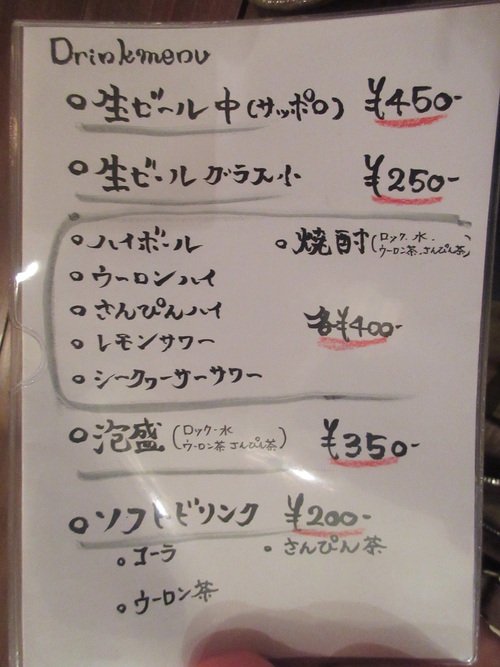 Drinkmenu
○生ビール 中(サッポロ) ¥450-
○生ビール グラス小 ¥250-
○ハイボール
○ウーロンハイ
○さんぴんハイ
○レモンサワー
○シークヮーサーサワー
○焼酎(ロック・水・
ウーロン茶・さんぴん茶)
各¥400-
○泡盛(ロック・水
ウーロン茶 さんぴん茶) ¥350-
○ソフトドリンク ¥200-
○コーラ ○さんぴん茶
○ウーロン茶